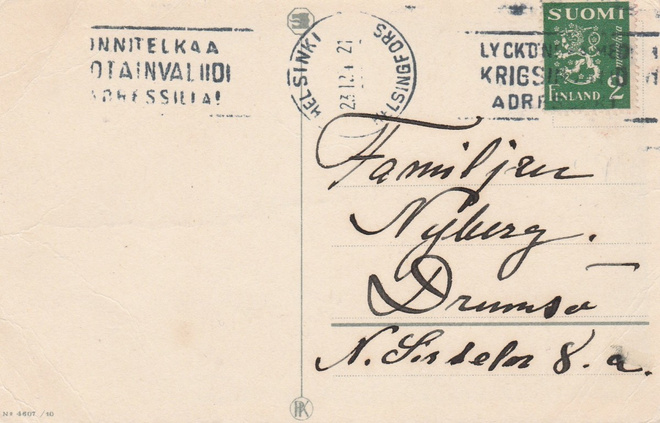 ONNITELKAA
OTAINVALIIDI
ADRESSILLA!
HELSINKI
HELSINGFORS
LYCKÖN
KRIGS
ADRE
SUOMI
FINLAND 2
Familjen
Nyberg.
Drumsö
N. 8. a.
No 4607 /10